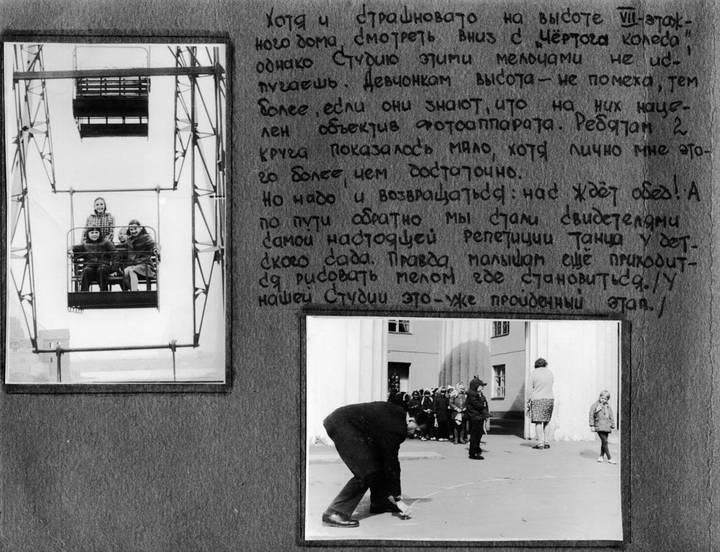 Хотя и страшновато на высоте VII-этаж-
ного дома смотреть вниз с „Чёртого колеса",
однако Студию этими мелочами не ис-
пугаешь. Девчонкам высота – не помеха, тем
более, если они знают, что на них наце-
лен объектив фотоаппарата. Ребятам 2
круга показалось мало, хотя лично мне это-
го более, чем достаточно.
Но надо и возвращаться: нас ждёт обед! А
по пути обратно мы стали свидетелями
самой настоящей репетиции танца у дет-
ского сада. Правда, малышам ещё приходит-
ся рисовать мелом где становиться. /У
нашей Студии это – уже пройденный этап./